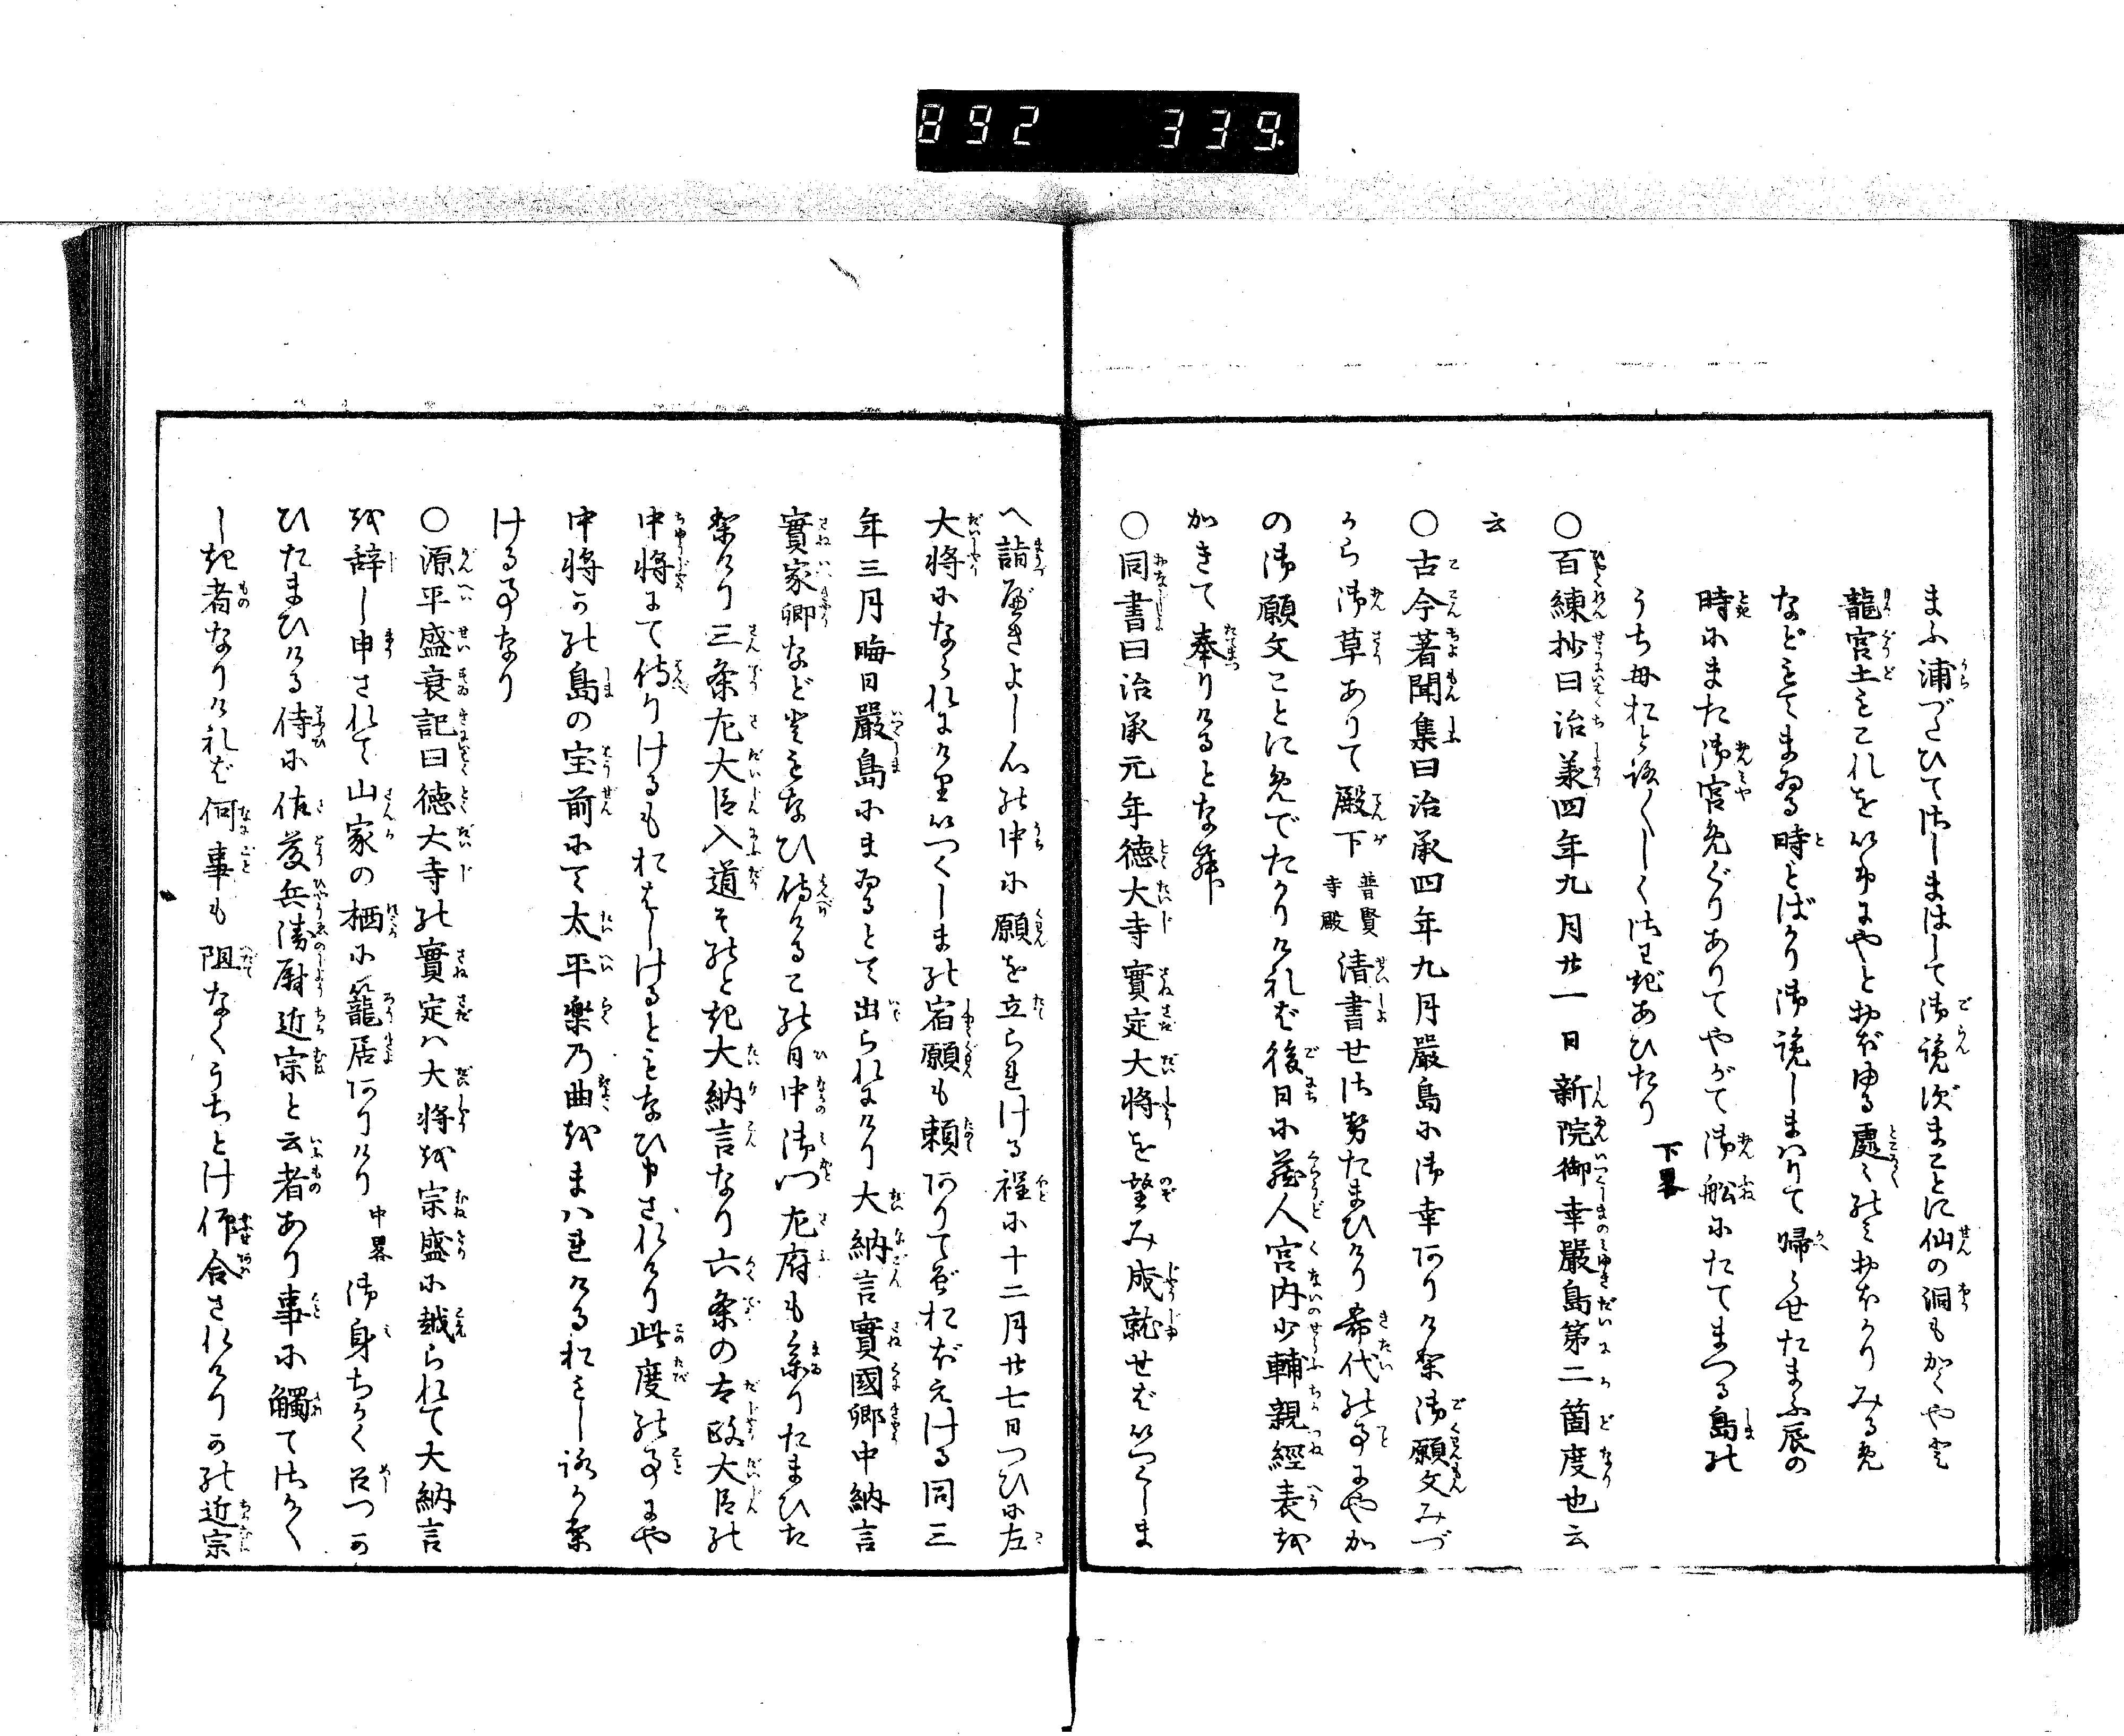 892 339.
まふ浦づたひておはしまはして御覧ずまことに仙の洞もかくやと
龍宮土をこれをいふにやとおぼゆる處〻のみおほかりみるめ
などもてまゐる時とばかり御覧しまはりて帰らせたまふ辰の
時にまた御宮めぐりありてやがて御舩にたてまつる島の
うち毋おと
あひたり 下畧
〇百練抄曰治承四年九月廿一日新院御幸嚴島第二箇度也云
云
〇古今著聞集曰治承四年九月嚴島に御幸ありけるに御願文みづ
から御草ありて殿下普賢寺殿清書せさせたまひけり希代の事にやか
の御願文ことにめでたかりければ後日に蔵人宮内少輔親經表を
かきて奉りけるとなん
〇同書曰治承元年徳大寺實定大将を望み成就せばいつくしま
へ詣べきよし心の中に願を立られける程に十二月廿七日つひに左
大将になられにけりいつくしまの宿願も頼ありてぞおぼえける同三
年三月晦日嚴島にまゐるとて出られにけり大納言實國卿中納言
實家卿などともなひ侍けるこの日中御門左府も参りたまひた
りけり三条左大臣入道そのとき大納言なり六条の太政大臣の
中将にて侍りけるもおはしけるともなひ申されけり此度の事にや
中将かの島の宝前にて太平楽の曲をまはれけるおもしろかり
ける事なり
〇源平盛衰記曰徳大寺の實定は大将を宗盛に越られて大納言
を辞し申されて山家の栖に籠居ありけり中畧御身ちかく召つか
ひたまひける侍に佐藤兵衛尉近宗と云者あり事に觸てさかく
しき者なりければ何事も阻なくうちとけ仰合されけりかの近宗